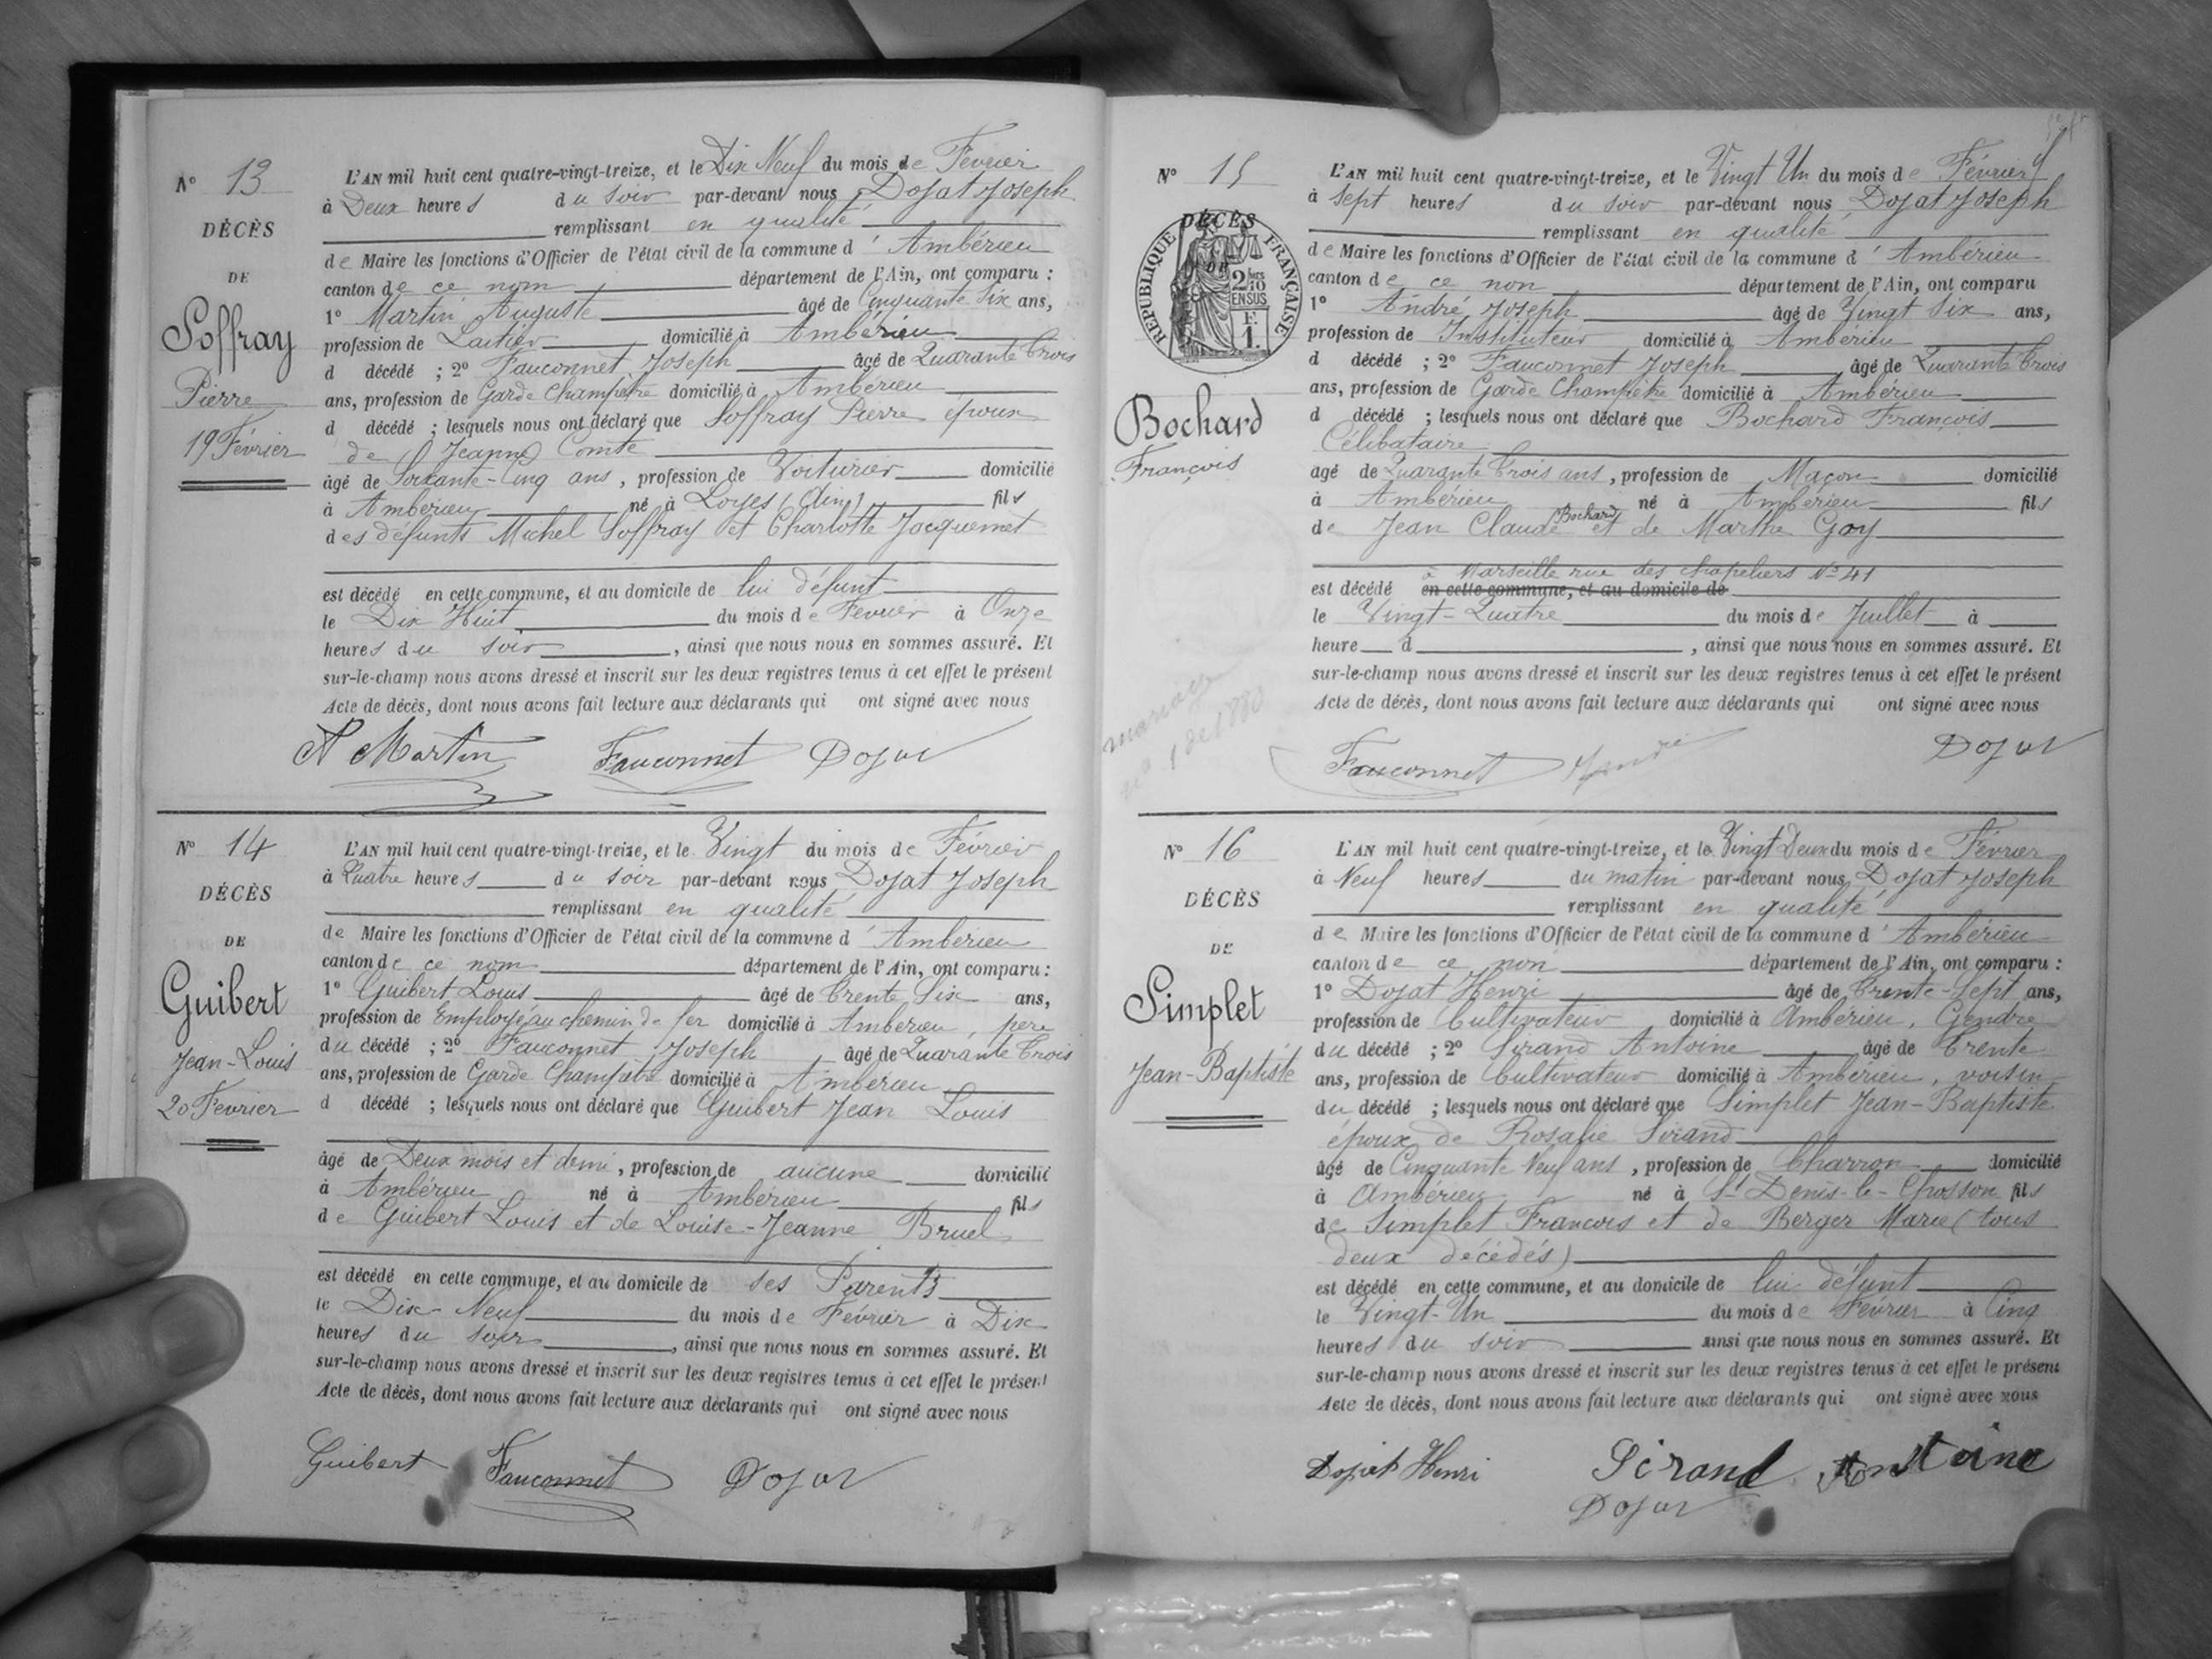 N° 13
DÉCÈS
DE
Soffray
Pierre
19 Février
L'AN mil huit cent quatre-vingt-treize, et le Dix Neuf du mois de Fevrier
à Deux heures du soir par-devant nous Dojat Joseph
remplissant en qualité
de Maire les fonctions d'Officier de l'état civil de la commune d'Ambérieu
canton de ce nom département de l'Ain, ont comparu :
1° Martin Auguste âgé de Cinquante Six ans,
profession de Laitier domicilié à Ambérieu
d décédé ; 2° Fauconnet Joseph âgé de Quarante Trois
ans, profession de Garde Champêtre domicilié à Ambérieu
d décédé ; lesquels nous ont déclaré que Soffray Pierre époux
de Jeanne Comte
âgé de Soixante-Cinq ans, profession de Voiturier domicilié
à Ambérieu né à Loyes (Ain) fils
des défunts Michel Soffray et Charlotte Jacquemet
est décédé en cette commune, et au domicile de lui défunt
le Dix Huit du mois de Fevrier à Onze
heures du soir, ainsi que nous nous en sommes assuré. Et
sur-le-champ nous avons dressé et inscrit sur les deux registres tenus à cet effet le présent
Acte de décès, dont nous avons fait lecture aux déclarants qui ont signé avec nous
A Martin Fauconnet Dojat
N° 14
DÉCÈS
DE
Guibert
Jean-Louis
20 Fevrier
L'AN mil huit cent quatre-vingt-treize, et le Vingt du mois de Février
à Quatre heures du soir par-devant nous Dojat Joseph
remplissant en qualité
de Maire les fonctions d'Officier de l'état civil de la commune d'Ambérieu
canton de ce nom département de l'Ain, ont comparu :
1° Guibert Louis âgé de Trente Six ans,
profession de Employé au chemin de fer domicilié à Ambérieu, père
du décédé ; 2° Fauconnet Joseph âgé de Quarante Trois
ans, profession de Garde Champêtre domicilié à Ambérieu
d décédé ; lesquels nous ont déclaré que Guibert Jean Louis
âgé de Deux mois et demi, profession de aucune domicilié
à Ambérieu né à Ambérieu fils
de Guibert Louis et de Louise-Jeanne Bruel
est décédé en cette commune, et au domicile de ses Parents
le Dix-Neuf du mois de Février à Dix
heures du soir, ainsi que nous nous en sommes assuré. Et
sur-le-champ nous avons dressé et inscrit sur les deux registres tenus à cet effet le présent
Acte de décès, dont nous avons fait lecture aux déclarants qui ont signé avec nous
Guibert Fauconnet Dojat
N° 15
DÉCÈS
DE
RÉPUBLIQUE FRANÇAISE
2/10 EN SUS
F. 1.
Bochard
François
mariage
L'AN mil huit cent quatre-vingt-treize, et le Vingt Un du mois de Février
à Sept heures du soir par-devant nous Dojat Joseph
remplissant en qualité
de Maire les fonctions d'Officier de l'état civil de la commune d'Ambérieu
canton de ce nom département de l'Ain, ont comparu
1° André Joseph âgé de Vingt Six ans,
profession de Instituteur domicilié à Ambérieu
d décédé ; 2° Fauconnet Joseph âgé de Quarante Trois
ans, profession de Garde Champêtre domicilié à Ambérieu
d décédé ; lesquels nous ont déclaré que Bochard François
Célibataire
âgé de Quarante Trois ans, profession de Maçon domicilié
à Ambérieu né à Ambérieu fils
de Jean Claude Bochard et de Marthe Goy
à Marseille rue des chapeliers N° 41
est décédé en cette commune, et au domicile de
le Vingt-Quatre du mois de Juillet à
heure d , ainsi que nous nous en sommes assuré. Et
sur-le-champ nous avons dressé et inscrit sur les deux registres tenus à cet effet le présent
Acte de décès, dont nous avons fait lecture aux déclarants qui ont signé avec nous
Fauconnet André Dojat
N° 16
DÉCÈS
DE
Simplet
Jean-Baptiste
L'AN mil huit cent quatre-vingt-treize, et le Vingt Deux du mois de Février
à Neuf heures du matin par-devant nous Dojat Joseph
remplissant en qualité
de Maire les fonctions d'Officier de l'état civil de la commune d'Ambérieu
canton de ce nom département de l'Ain, ont comparu :
1° Dojat Henri âgé de Trente-Sept ans,
profession de Cultivateur domicilié à Ambérieu, Gendre
du décédé ; 2° Sirand Antoine âgé de Trente
ans, profession de Cultivateur domicilié à Ambérieu, voisin
du décédé ; lesquels nous ont déclaré que Simplet Jean-Baptiste
époux de Rosalie Sirand
âgé de Cinquante Neuf ans, profession de Charron domicilié
à Ambérieu né à St Denis-le-Chosson fils
de Simplet François et de Berger Marie (tous
deux décédés)
est décédé en cette commune, et au domicile de lui défunt
le Vingt-Un du mois de Fevrier à Cinq
heures du soir ainsi que nous nous en sommes assuré. Et
sur-le-champ nous avons dressé et inscrit sur les deux registres tenus à cet effet le présent
Acte de décès, dont nous avons fait lecture aux déclarants qui ont signé avec nous
Dojat Henri Sirand Antoine
Dojat